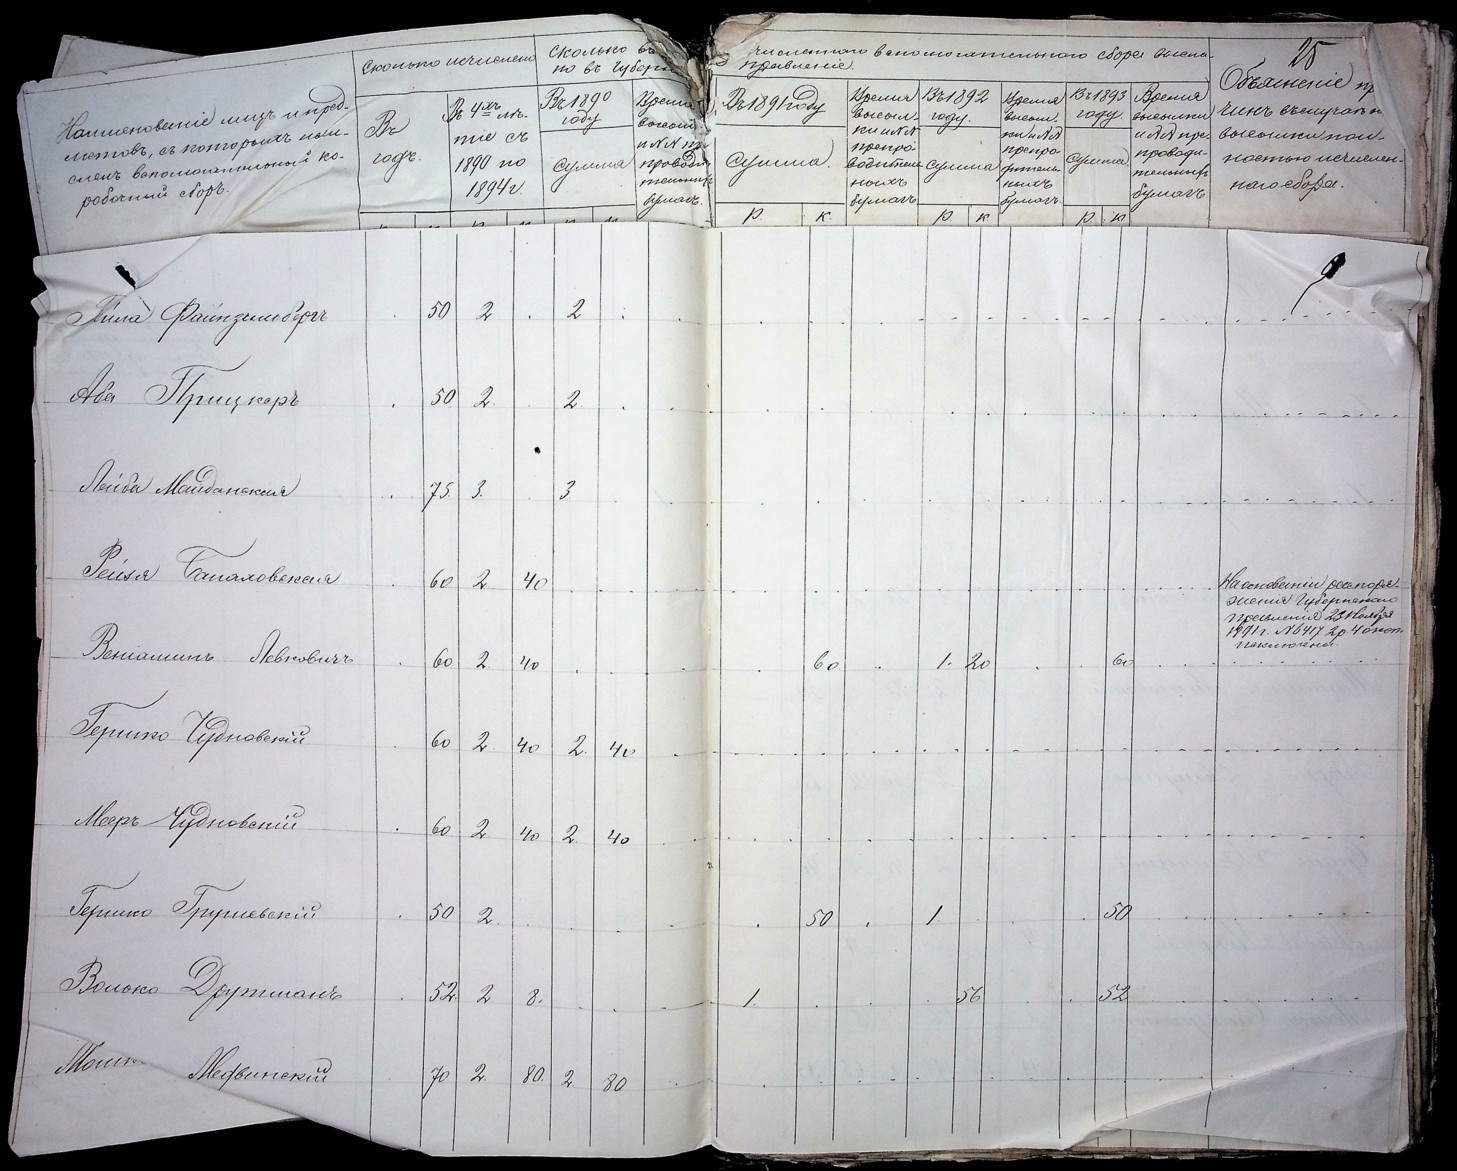 25
Наименованіе лицъ и пред-
метовъ, съ которыхъ исчи-
сленъ вспомогательный ко-
робочный сборъ.
Сколько исчислено
Въ годъ.
Въ 4хъ лѣ-
тіе съ
1890 по
1894 г.
Сколько въ
но въ Губерн
Въ 1890
году
Сумма
Время
высыл
и №№ пр
проводи
тельных
бумагъ.
численнаго вспомогательнаго сбора выслано
правленіе.
Въ 1891 году
Сумма
Время
высыл-
ки и №№
препро-
водитель
ныхъ
бумагъ
Въ 1892
году.
Сумма
Время
высыл-
ки и №№
препро-
ныхъ
бумагъ
Въ 1893
году.
Сумма
Время
высылки
и №№ пре-
проводи-
тельныхъ
бумагъ
Объясненіе пр
чинъ
высылки пол-
ностью исчислен-
наго сбора.
р. к. р к р к
Файнзильбергъ 50 2 . 2
Аба Прицкеръ 50 2 . 2
Лейба Майданская 75 3. 3
Рейзя 60 2 40
На основаніи распоря-
женія Губернскаго
правленія 23 Ноября
1891 г. №6417 2 р. 40 коп
исключены.
Веніаминъ Левковичъ 60 2 40 60 1. 20 60
Гершко Чудновскій 60 2 40 2 40
Меръ Чудновскій 60 2 40 2 40
Гершко 50 2 50 1. 50
Волько 52 2 8. 1. 56 52
Мошк Медвинскій 70 2 80 2 80